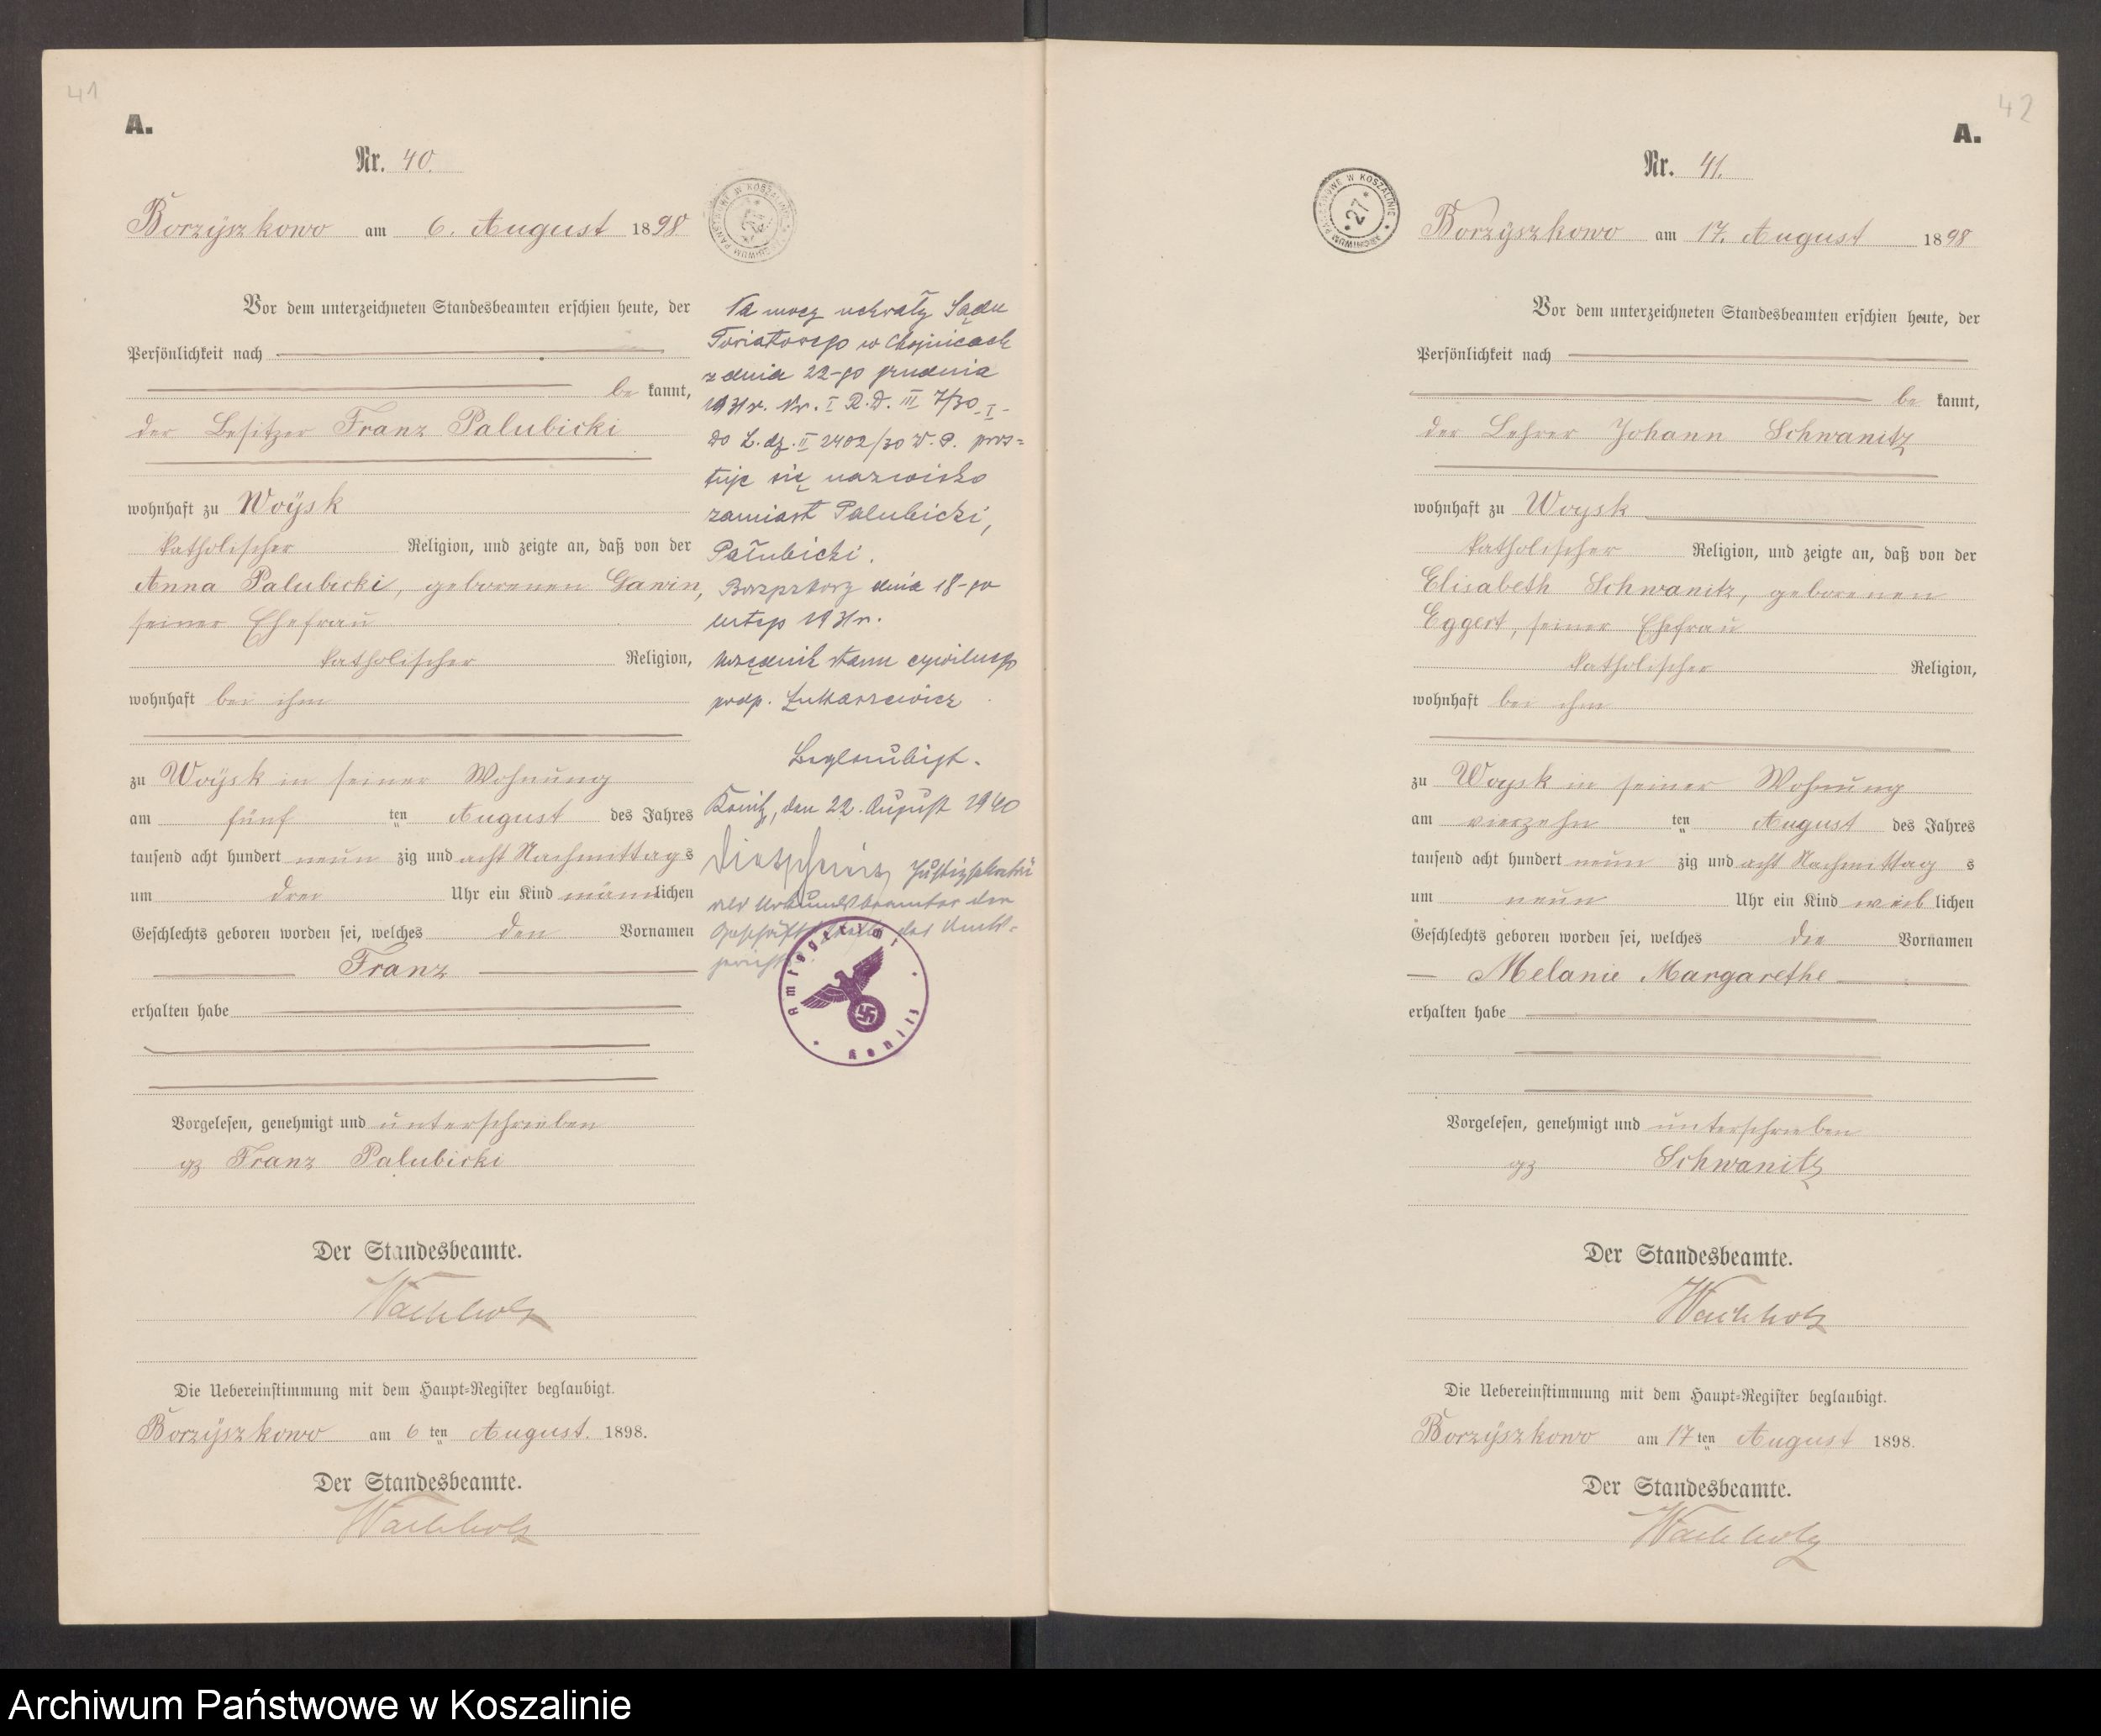 41
A.
Nr. 40.
Borzÿszkowo am 6. August 1898
ARCHIWUM PAŃSTWOWE W KOSZALINIE
Vor dem unterzeichneten Standesbeamten erschien heute, der
Persönlichkeit nach
be kannt,
der Besitzer Franz Palubicki
wohnhaft zu Woÿsk
katholischer Religion, und zeigte an, daß von der
Anna Palubicki, geborenen Gawin,
seiner Ehefrau
katholischer Religion,
wohnhaft bei ihm
zu Woÿsk in seiner Wohnung
am fünf ten August des Jahres
tausend acht hundert neun zig und acht Nachmittags
um drei Uhr ein Kind männlichen
Geschlechts geboren worden sei, welches den Vornamen
Franz
erhalten habe
Vorgelesen, genehmigt und unterschrieben
gz Franz Palubicki
Der Standesbeamte.
Wachholz
Die Uebereinstimmung mit dem Haupt-Register beglaubigt.
Borzÿszkowo am 6 ten August. 1898.
Der Standesbeamte.
Wachholz
Na mocy uchwały Sądu
Powiatowego w Chojnicach
z dnia 22-go grudnia
1931r. Nr. I R.D. III 7/30 I-
do L. dz. II 2402/30 W. P. pros=
tuje się nazwisko
zamiast Palubicki,
Pałubicki.
dnia 18-go
lutego 1931r.
Urzędnik stanu cywilnego
podp. Łukaszewicz
Beglaubigt.
Konitz, den 22. August 1940
Justizsekretär
als Urkundsbeamter der
Geschäftsstelle des Amts-
gerichts
Amtsgericht Konitz
42
A.
Nr. 41.
ARCHIWUM PAŃSTWOWE W KOSZALINIE
*27*
Borzÿszkowo am 17. August 1898
Vor dem unterzeichneten Standesbeamten erschien heute, der
Persönlichkeit nach
be kannt,
der Lehrer Johann Schwanitz
wohnhaft zu Woysk
katholischer Religion, und zeigte an, daß von der
Elisabeth Schwanitz, geborenen
Eggert, seiner Ehefrau
katholischer Religion,
wohnhaft bei ihm
zu Woysk in seiner Wohnung
am vierzehn ten August des Jahres
tausend acht hundert neun zig und acht Nachmittag s
um neun Uhr ein Kind weib lichen
Geschlechts geboren worden sei, welches die Vornamen
Melanie Margarethe
erhalten habe
Vorgelesen, genehmigt und unterschrieben
gz Schwanitz
Der Standesbeamte.
Wachholz
Die Uebereinstimmung mit dem Haupt-Register beglaubigt.
Borzÿszkowo am 17 ten August 1898.
Der Standesbeamte.
Wachholz
Archiwum Państwowe w Koszalinie